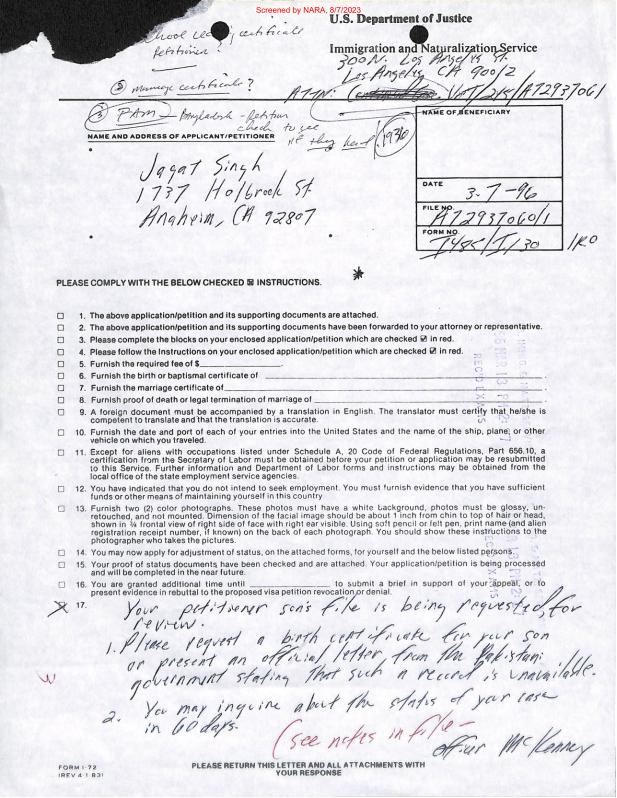 Screened by NARA, 8/7/2023
U.S. Department of Justice
Immigration and Naturalization Service
300 N. Los Angeles St.
Los Angeles CA 90012
ATTN:
A72937061
school certificate
Petitioner?
② marriage certificate?
③ PAM - Bangladesh - petition
check to see
if they have 1936
NAME AND ADDRESS OF APPLICANT/PETITIONER
NAME OF BENEFICIARY
Jagat Singh
1737 Holbrook St.
Anaheim, CA 92807
DATE
3-7-96
FILE NO.
A72937060/1
FORM NO.
I485/I130
PLEASE COMPLY WITH THE BELOW CHECKED ☒ INSTRUCTIONS.
☐ 1. The above application/petition and its supporting documents are attached.
☐ 2. The above application/petition and its supporting documents have been forwarded to your attorney or representative.
☐ 3. Please complete the blocks on your enclosed application/petition which are checked ☑ in red.
☐ 4. Please follow the Instructions on your enclosed application/petition which are checked ☑ in red.
☐ 5. Furnish the required fee of $
☐ 6. Furnish the birth or baptismal certificate of
☐ 7. Furnish the marriage certificate of
☐ 8. Furnish proof of death or legal termination of marriage of
☐ 9. A foreign document must be accompanied by a translation in English. The translator must certify that he/she is
competent to translate and that the translation is accurate.
☐ 10. Furnish the date and port of each of your entries into the United States and the name of the ship, plane, or other
vehicle on which you traveled.
☐ 11. Except for aliens with occupations listed under Schedule A, 20 Code of Federal Regulations, Part 656.10, a
certification from the Secretary of Labor must be obtained before your petition or application may be resubmitted
to this Service. Further information and Department of Labor forms and instructions may be obtained from the
local office of the state employment service agencies.
☐ 12. You have indicated that you do not intend to seek employment. You must furnish evidence that you have sufficient
funds or other means of maintaining yourself in this country
☐ 13. Furnish two (2) color photographs. These photos must have a white background, photos must be glossy, un-
retouched, and not mounted. Dimension of the facial image should be about 1 inch from chin to top of hair or head,
shown in ¾ frontal view of right side of face with right ear visible. Using soft pencil or felt pen, print name (and alien
registration receipt number, if known) on the back of each photograph. You should show these instructions to the
photographer who takes the pictures.
☐ 14. You may now apply for adjustment of status, on the attached forms, for yourself and the below listed persons.
☐ 15. Your proof of status documents have been checked and are attached. Your application/petition is being processed
and will be completed in the near future.
☐ 16. You are granted additional time until ____ to submit a brief in support of your appeal, or to
present evidence in rebuttal to the proposed visa petition revocation or denial.
17. Your petitioner son's file is being requested, for
review.
1. Please request a birth certificate for your son
or present an official letter from the Pakistani
government stating that such a record is unavailable.
2. You may inquire about the status of your case
in 60 days.
(see notes in file-
officer McKenney
FORM I-72
(REV 4-1-83)
PLEASE RETURN THIS LETTER AND ALL ATTACHMENTS WITH
YOUR RESPONSE